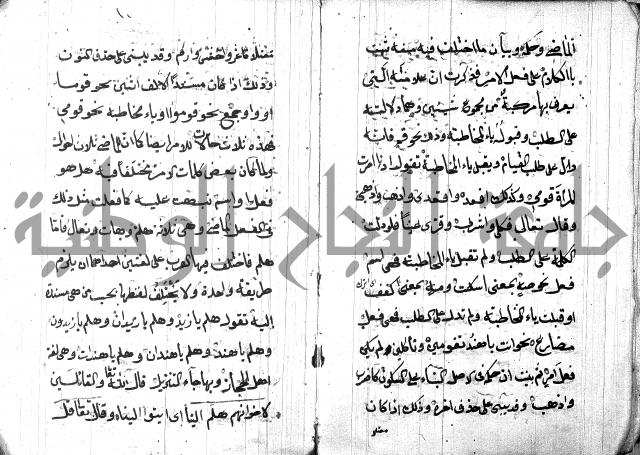 الماضي وحكمه وبيان ما اختلف فيه منه ثنيت
بالكلام على فعل الامر فذكرت ان علامته التي
يعرف بها مركبة من مجموع شيئين وهما دلالته
على الطلب وقبوله ياء المخاطبة وذلك نحو قم فانه
دال على طلب القيام ويقبل ياء المخاطبة تقول اذا امرت
المراة قومي وكذلك اقعد واقعدي واذهب واذهبي
وقال تعالى فكلي واشربي وقري عينا فلو دلت
الكلمة على الطلب ولم تقبل ياء المخاطبة فهي اسم
فعل نحو صه بمعنى اسكت ومه بمعنى اكفف
او قبلت ياء المخاطبة ولم تدل على الطلب فهي فعل
مضارع نحو انت يا هند تقومين وتاكلين ولم يكن
فعل امر ثم بينت ان حكمه في الاصل البناء على السكون كاضرب
واذهب وقد يبنى على حذف اخره وذلك اذا كان
معتلا
معتلا كاغز واخش وارم وقد يبنى على حذف النون
وذلك اذا كان مسندا لالف اثنين نحو قوما
او واو جمع نحو قوموا او ياء مخاطبة نحو قومي
فهذه ثلاث حالات للامر ايضا كما ان للماضي ثلاث احوال
ولما كان بعض كلمات الامر مختلفا فيه هل هو
فعل او اسم نبهت عليه كما فعلت مثل ذلك
في الفعل الماضي وهي ثلاثة هلم وهات وتعال فاما
هلم فاختلف فيها العرب على لغتين احداهما ان يلزم
طريقة واحدة ولا يختلف لفظها بحسب من هي مسندة
اليه تقول هلم يا زيد وهلم يا زيدان وهلم يا زيدون
وهلم يا هند وهلم يا هندان وهلم يا هندات وهي لغة
اهل الحجاز وبها جاء التنزيل قال الله تعالى والقائلين
لاخوانهم هلم الينا اي ايتوا الينا وقال تعالى قل
جامعة النجاح الوطنية